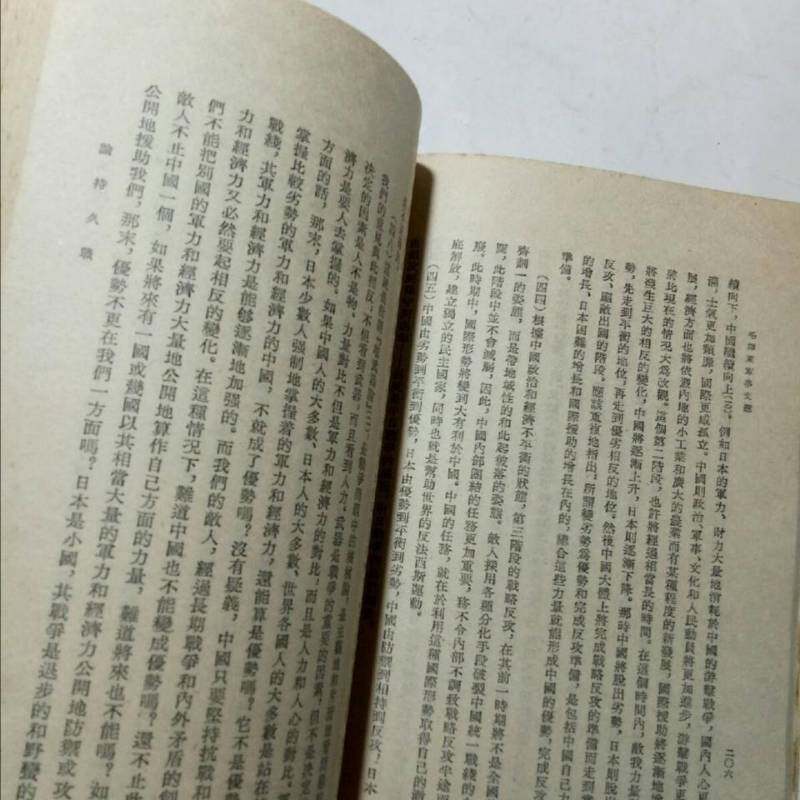 二〇六
毛澤東軍事文選
續向下，中國繼續向上（二）。例如日本的軍力、財力大量地消耗於中國的游擊戰爭，國內人心更
沮喪，士氣更加頹靡，國際更感孤立。中國則政治、軍事、文化和人民動員將更加進步，游擊戰爭更
展，經濟方面也將依憑內地的小工業和廣大的農業而有某種程度的新發展，國際援助將逐漸地增
比現在的情況大為改觀。這個第二階段，也許將經過相當長的時間。在這個時間內，敵我力量
將發生巨大的相反的變化，中國將逐漸上升，日本則逐漸下降。那時中國將脫出劣勢，日本則脫出
勢，先走到平衡的地位，再走到優劣相反的地位。然後中國大體上將完成戰略反攻的準備而走到實
反攻、驅敵出國的階段。應該重複地指出，所謂變劣勢為優勢和完成反攻準備，是包括中國自己力
的增長、日本困難的增長和國際援助的增長在內的，總合這些力量就能形成中國的優勢，完成反攻
準備。
（四四）根據中國政治和經濟不平衡的狀態，第三階段的戰略反攻，在其前一時期將不是全國
齊劃一的姿態，而是帶地域性的和此起彼落的姿態。敵人採用各種分化手段破裂中國統一戰綫的
圖，此階段中並不會減弱，因此，中國內部團結的任務更加重要，務不令內部不調致戰略反攻半途而
廢。此時期中，國際形勢將變到大有利於中國。中國的任務，就在於利用這種國際形勢取得自己的徹
底解放，建立獨立的民主國家，同時也就是幫助世界的反法西斯運動。
（四五）中國由劣勢到平衡到優勢，日本由優勢到平衡到劣勢，中國由防禦到相持到反攻，日本
我們的意見與此相反，不但看到武器，而且看到人力。武器是戰爭的重要的因素，但不是決定
決定的因素是人不是物。力量對比不但是軍力和經濟力的對比，而且是人力和人心的對比。
濟力是要人去掌握的。如果中國人的大多數、日本人的大多數、世界各國人的大多數是站在
方面的話，那末，日本少數人強制地掌握着的軍力和經濟力，還能算是優勢嗎？它不是優勢
掌握比較劣勢的軍力和經濟力的中國，不就成了優勢嗎？沒有疑義，中國只要堅持抗戰和
戰綫，其軍力和經濟力是能够逐漸地加強的。而我們的敵人，經過長期戰爭和內外矛盾的
力和經濟力又必然要起相反的變化。在這種情況下，難道中國也不能變成優勢嗎？還不止此
們不能把別國的軍力和經濟力大量地公開地算作自己方面的力量，難道將來也不能嗎？如
敵人不止中國一個，如果將來有一國或幾國以其相當大量的軍力和經濟力公開地防禦或攻
公開地援助我們，那末，優勢不更在我們一方面嗎？日本是小國，其戰爭是退步的和野蠻的
論持久戰